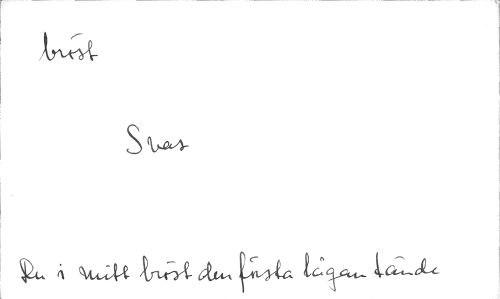 bröst
Svas
Du i mitt bröst den första lågan tände